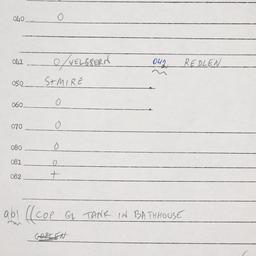 040 O
041 O/VELGBERN 042 REDLEN
050 S+MIRE
060 O
070 O
080 O
081 O
082 +
ab) ((COP GL TANK IN BATHHOUSE